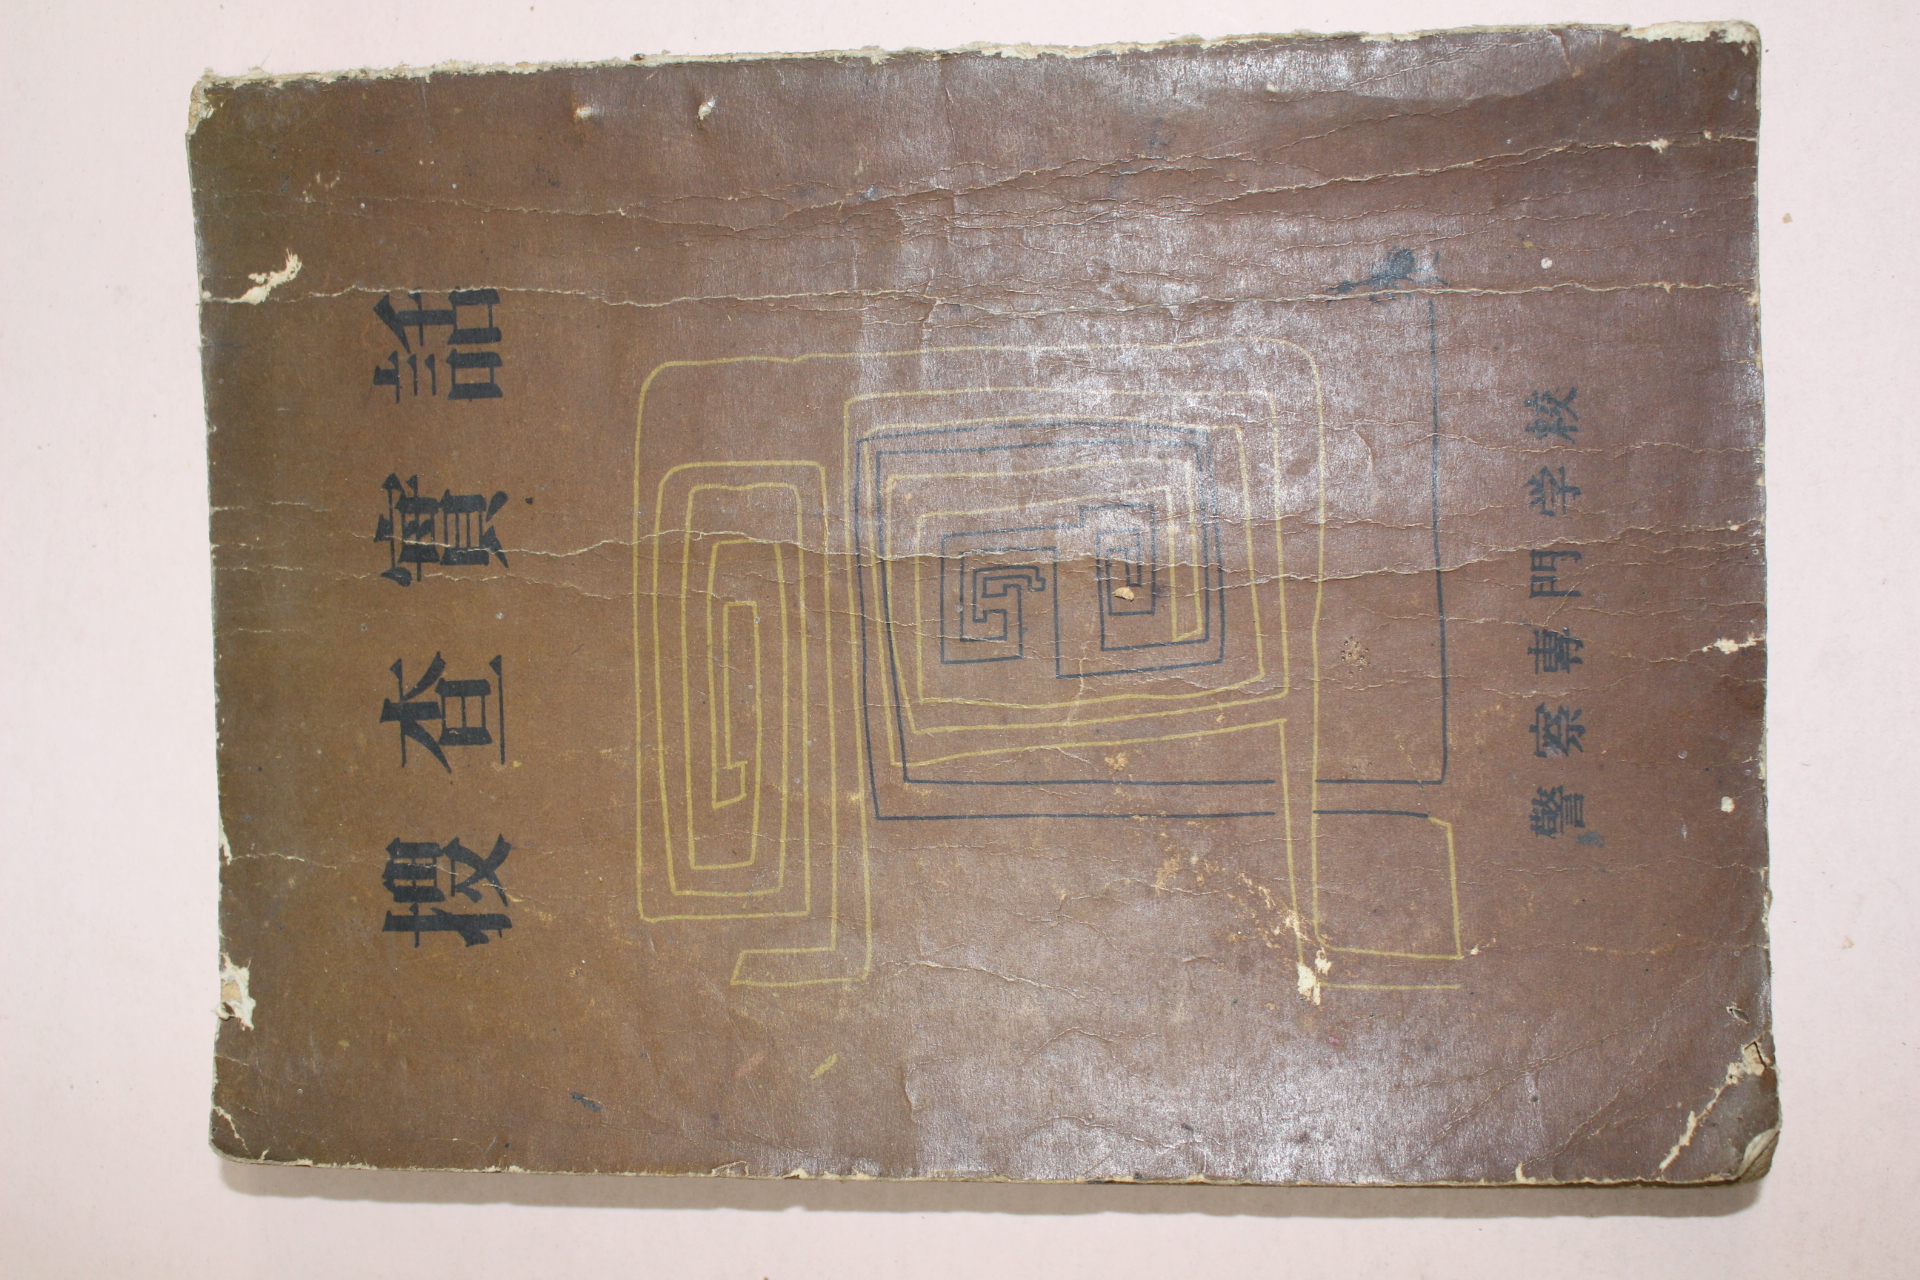 搜查實話
警察專門学校